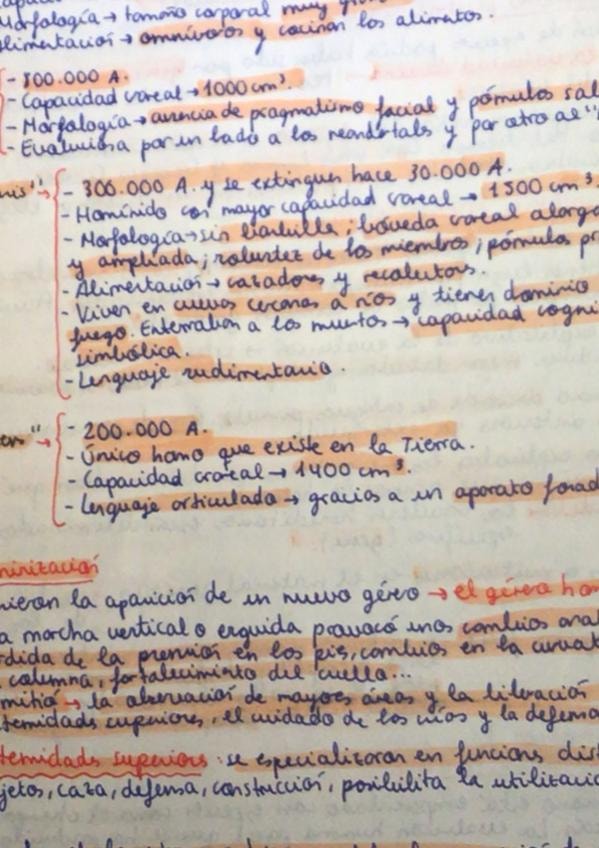 Morfología → tamaño corporal muy
alimentación → omnívoros y cocinan los alimentos.
- 500.000 A.
- Capacidad craneal → 1000 cm³.
- Morfología → ausencia de pragmatismo facial y pómulos sal
- Evoluciona por un lado a los neandertals y por otro al "
nis" →
- 300.000 A. y se extinguen hace 30.000 A.
- Homínido con mayor capacidad craneal → 1500 cm³.
- Morfología → sin barbilla; bóveda craneal alarga
y ampliada; robustez de los miembros; pómulos pr
- Alimentación → cazadores y recolectores.
- Viven en cuevas cercanas a ríos y tienen dominio
fuego. Enterraban a los muertos → capacidad cogni
simbólica.
- Lenguaje rudimentario.
- 200.000 A.
- Único homo que existe en la Tierra.
- Capacidad craneal → 1400 cm³.
- Lenguaje articulado → gracias a un aparato fonad
minización
nieron la aparición de un nuevo género → el género hom
a marcha vertical o erguida provocó unos cambios ana
rdida de la prensión en los pies, cambios en la curvat
columna, fortalecimiento del cuello...
mitió → la observación de mayores áreas y la liberación
temidades superiores, el cuidado de los críos y la defensa
temidades superiores: se especializaron en funciones dist
jetos, caza, defensa, construcción, posibilita la utilizació